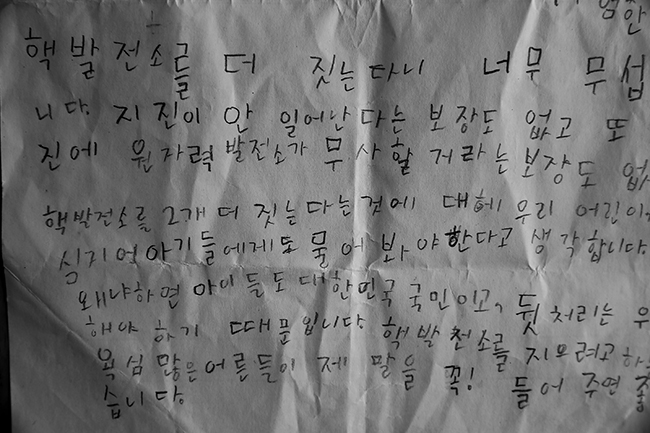 엄한
핵발전소를 더 짓는다니 너무 무섭
니다. 지진이 안 일어난다는 보장도 없고 또
진에 원자력발전소가 무사할 거라는 보장도 없
핵발전소를 2개 더 짓는다는것에 대헤 우리 어린이,
심지어 아기들에게도 물어 봐야한다고 생각합니다.
왜냐하면 아이들도 대한민국 국민이고, 뒷처리는 우
해야 하기 때문입니다. 핵발전소를 지으려고 하
욕심 많은 어른들이 제 말을 꼭! 들어 주면 좋
습니다.